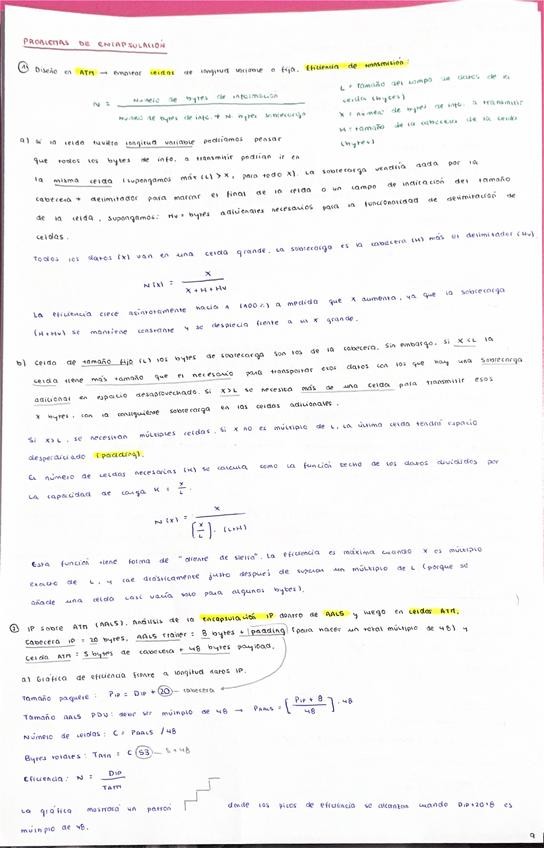 PROBLEMAS DE ENCAPSULACIÓN
① Diseño en ATM → emplear celdas de longitud variable o fija. Eficiencia de transmisión:
N = Número de bytes de información / Número de bytes de info. + N. bytes sobrecarga
L = tamaño del campo de datos de la celda (bytes)
X = número de bytes de info. a transmitir
H = tamaño de la cabecera de la celda (bytes)
a) Si la celda tuviera longitud variable podríamos pensar
que todos los bytes de info. a transmitir podrían ir en
la misma celda (supongamos máx (L) > X, para todo X). La sobrecarga vendría dada por la
cabecera + delimitador para marcar el final de la celda o un campo de indicación del tamaño
de la celda, supongamos: Hv = bytes adicionales necesarios para la funcionalidad de delimitación de
celdas.
Todos los datos (X) van en una celda grande. La sobrecarga es la cabecera (H) más el delimitador (Hv)
N(X) = X / X+H+Hv
La eficiencia crece asintotamente hacia 1 (100%) a medida que X aumenta, ya que la sobrecarga
(H+Hv) se mantiene constante y se desprecia frente a un X grande.
b) Celda de tamaño fijo (L) los bytes de sobrecarga son los de la cabecera. Sin embargo, si X<L la
celda tiene más tamaño que el necesario para transportar esos datos con los que hay una sobrecarga
adicional en espacio desaprovechado. Si X>L se necesita más de una celda para transmitir esos
X bytes, con la consiguiente sobrecarga en las celdas adicionales.
Si X>L, se necesitan múltiples celdas. Si X no es múltiplo de L, la última celda tendrá espacio
desperdiciado (padding).
El número de celdas necesarias (K) se calcula como la función techo de los datos divididos por
la capacidad de carga K = X/L.
N(X) = X / ⌈X/L⌉ · (L+H)
Esta función tiene forma de "diente de sierra". La eficiencia es máxima cuando X es múltiplo
exacto de L, y cae drásticamente justo después de superar un múltiplo de L (porque se
añade una celda casi vacía solo para algunos bytes).
② IP sobre ATM (AAL5). Análisis de la encapsulación IP dentro de AAL5 y luego en celdas ATM.
Cabecera IP = 20 bytes, AAL5 Trailer = 8 bytes + padding (para hacer un total múltiplo de 48) y
celda ATM = 5 bytes de cabecera + 48 bytes payload.
a) Gráfica de eficiencia frente a longitud datos IP.
Tamaño paquete: PIP = DIP + 20 – cabecera
Tamaño AAL5 PDU: debe ser múltiplo de 48 → PAAL5 = ⌈PIP + 8 / 48⌉ · 48
Número de celdas: C = PAAL5 / 48
Bytes totales: TATM = C · 53 – 5+48
Eficiencia: N = DIP / TATM
La gráfica mostrará un patrón donde los picos de eficiencia se alcanzan cuando DIP+20+8 es
múltiplo de 48.
9